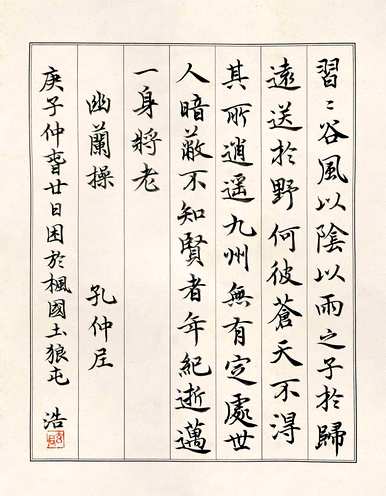 習〻谷風以陰以雨之子於歸
遠送於野何彼蒼天不得
其所逍遥九州無有定處世
人暗蔽不知賢者年紀逝邁
一身將老
幽蘭操 孔仲尼
庚子仲春廿日困於楓國土狼屯 浩